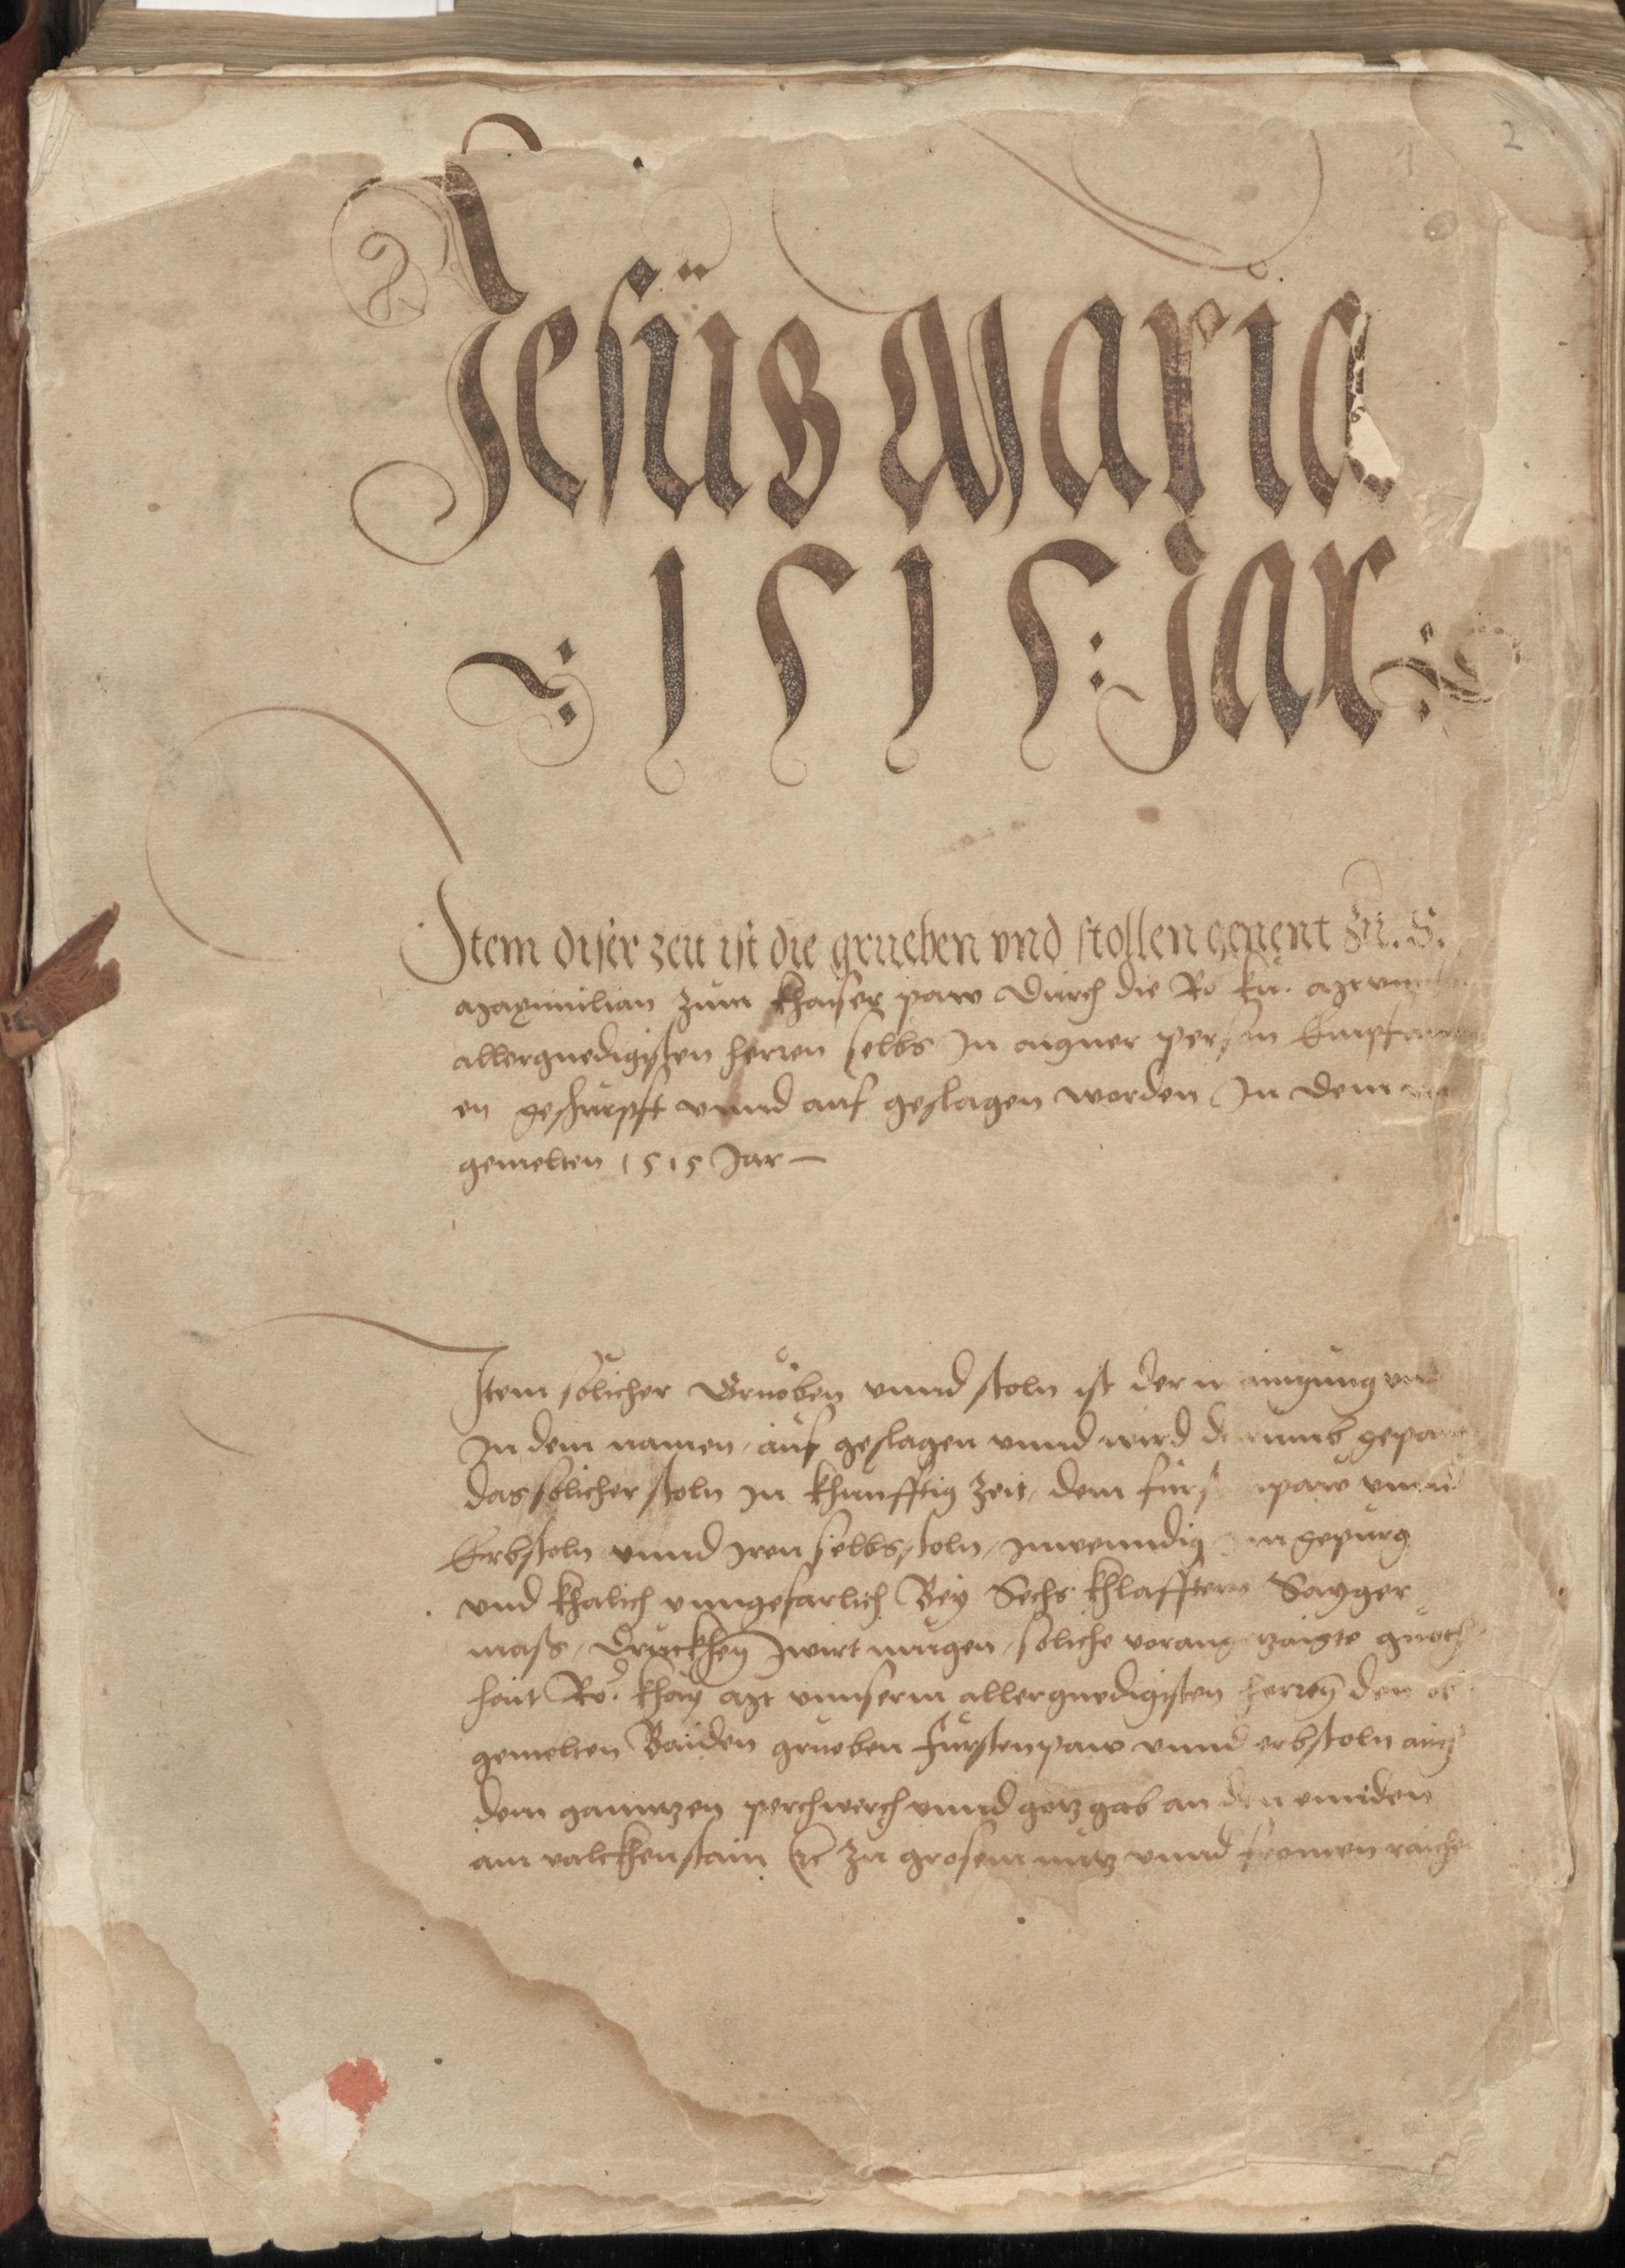 2
1
Jesüs Maria
1515 : jar
Item diser zeit ist die grueben vnd stollen genent Zu. S.
Maximilian zum khaiser paw durch die Ro. kü. Mt
allergnedigisten herren selbs In aigner person
en geschürpft vnnd auf geslagen worden In dem
gemelten 1515 Jar —
Item sölicher Grueben vnnd stoln ist der mainnung
In dem namen, auf geslagen vnnd wird darumb
das sölicher stoln In khunfftig zeit, dem fürstenpaw vnnd
Erbstoln vnnd Iren selbs stoln, Inwenndig Im gepurg
vnd khalich vungefarlich Bey Sechs khlafftern Sayger
mass, Druckhen wirt mugen, söliche vorangezaigte
hait Rö. khay Mt vnnserm allergnedigisten herren den
gemelten Baiden grueben fürstenpaw vnnd erbstoln auch
dem ganntzen perchwerch vnnd gotzgab an den ennden
am valckhenstain etc zu grosem nutz vnnd fromen